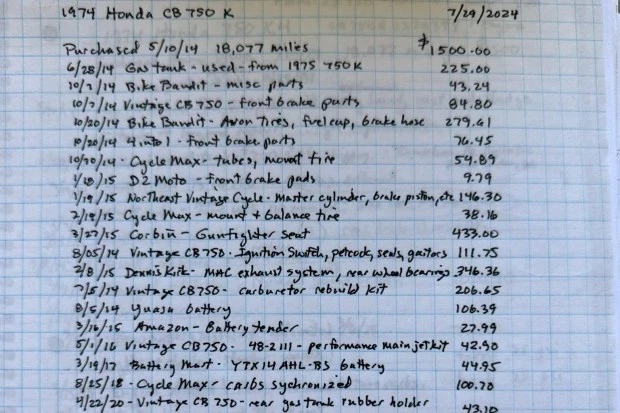 1974 Honda CB 750 K 7/29/2024
Purchased 5/10/14 18,077 miles $1500.00
6/28/14 Gas tank - used - from 1975 750K 225.00
10/7/14 Bike Bandit - misc parts 43.24
10/7/14 Vintage CB750 - front brake parts 84.80
10/20/14 Bike Bandit - Avon Tires, fuel cap, brake hose 279.61
10/20/14 4 into 1 - front brake parts 76.45
10/30/14 - Cycle Max - tubes, mount tire 54.89
D2 Moto - front brake pads 9.79
1/19/15 Northeast Vintage Cycle - Master cylinder, brake piston, etc 146.30
2/19/15 Cycle Max - mount + balance tire 38.16
3/27/15 Corbin - Gunfighter seat 433.00
8/05/14 Vintage CB750 - Ignition Switch, petcock, seals, gaitors 111.75
2/8/15 Dennis Kirk - MAC exhaust system, rear wheel bearings 346.36
7/5/14 Vintage CB750 - carburetor rebuild kit 206.65
8/5/14 Yuasa battery 106.39
3/16/15 Amazon - Battery tender 27.99
5/1/16 Vintage CB750 - 48-2111 - performance main jet kit 42.90
3/19/17 Battery Mart - YTX14AHL-BS battery 44.95
8/25/18 - Cycle Max - carbs sychronized 100.70
4/22/20 - Vintage CB 750 - rear gas tank rubber holder 43.10